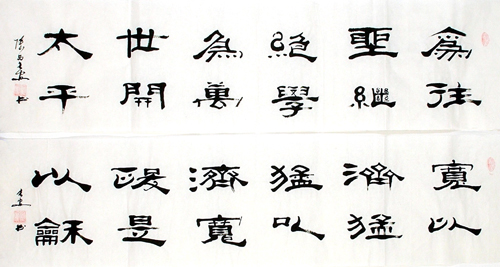 爲往
聖繼
絕學
為萬
世開
太平
寬以
濟猛
猛以
濟寬
政是
以龢